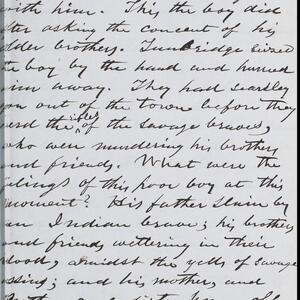 with him. This the boy did
after asking the concent of his
older brothers. Tunbridge seized
the boy by the hand and hurried
him away. They had scarsley
out of the town before they
the yells of the savage braves,
who were murdering his brothers
and friends. What were the
feelings of this poor boy at this
moment? His father slain by
an Indian brave; his brothers
and friends weltering in their
blood, amidst the yells of savage
; and his mother, and